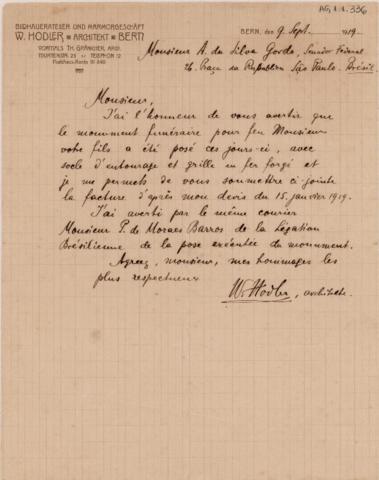 AG.1.1.336
BILDHAUERATELIER UND MARMORGESCHÄFT
W. HODLER ARCHITEKT BERN
VORMALS TH. GRÄNICHER, ARCH.
TELEPHON
BERN, den 9. Sept. 1919.
Monsieur A. da Silva Gordo, Senador Federal
26, Praça da Republica São Paulo. Brésil.
Monsieur,
J'ai l'honneur de vous avertir que
le monument funéraire pour feu Monsieur
votre fils a été posé ces jours-ci, avec
socle d'entourage et grille en fer forgé et
je me permets de vous soumettre ci-jointe
la facture d'après mon devis du 15. janvier 1919.
J'ai averti par le même courier
Monsieur P. de Moraes Barros de la Légation
Brésilienne de la pose exécutée du monument.
Agréez, monsieur, mes hommages les
plus respectueux
W. Hodler, architecte.